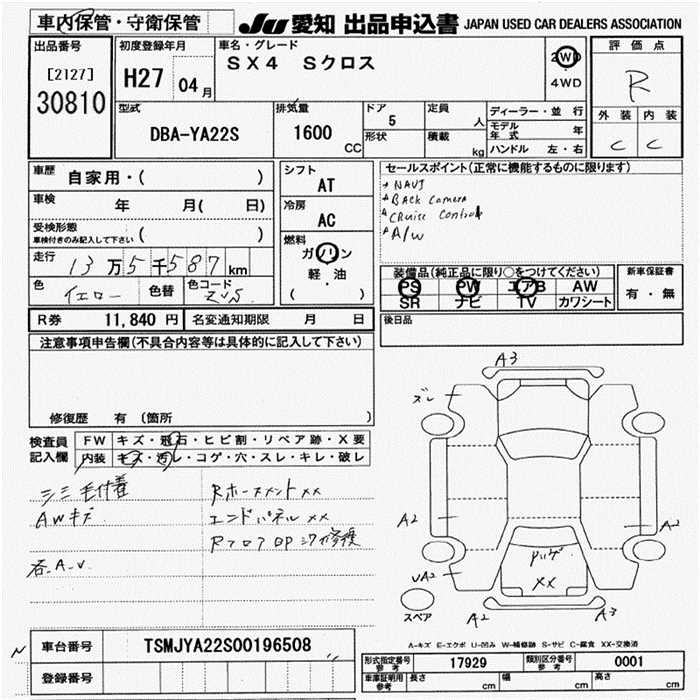 車内保管・守衛保管 JU 愛知 出品申込書 JAPAN USED CAR DEALERS ASSOCIATION
出品番号 初度登録年月 車名・グレード 評価点
[2127] H27 04月 SX4 Sクロス 2WD R
30810 4WD
型式 排気量 ドア 定員 ディーラー・並行 外装 内装
DBA-YA22S 1600 CC 5 人 モデル年式 年 C C
形状 積載 kg ハンドル 左・右
車歴 自家用・( ) シフト AT セールスポイント(正常に機能するものに限ります)
車検 年 月( 日) 冷房 AC NAVI
Back Camera
Cruise Control
A/W
受検形態 ( )
車検付きのみ記入して下さい
燃料 ガソリン
軽・油
( )
走行 13万5千587km
色 イエロー 色替 色コード ZVS
装備品(純正品に限り○をつけてください) 新車保証書
PS PW エアB AW 有・無
SR ナビ TV カワシート
R券 11,840円 名変通知期限 月 日 後日品
注意事項申告欄(不具合内容等は具体的に記入して下さい)
修復歴 有 (箇所 )
検査員 FW キズ・飛石・ヒビ割・リペア跡・X要
記入欄 内装 キズ・汚レ・コゲ・穴・スレ・キレ・破レ
AWキズ
エンドパネル XX
A3
ズレ
A2 A2
UA2 XX
A2 A3
スペア
A-キズ E-エクボ U-凹み W-補修跡 S-サビ C-腐食 XX-交換済
N 車台番号 TSMJYA22S00196508
登録番号
形式指定番号 参考 17929 類別区分番号 参考 0001
車庫証明用 参考 長さ cm 幅 cm 高さ cm